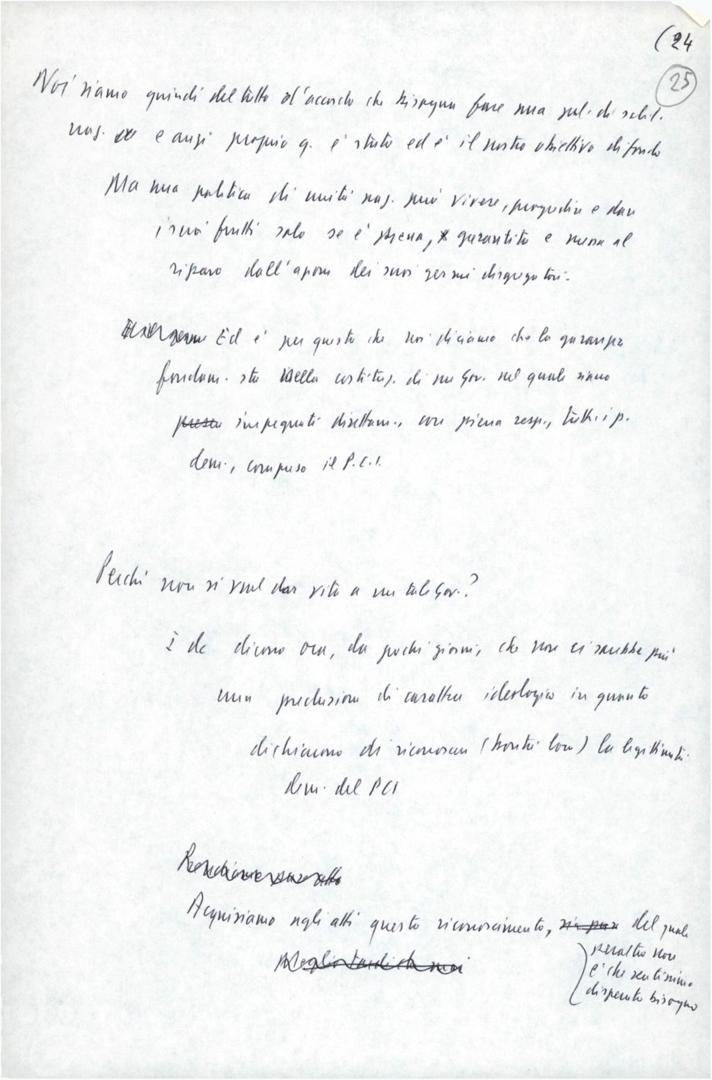 (24
25
Noi siamo quindi del tutto d'accordo che bisogna fare una pol. di solid.
naz. e anzi proprio q. è stato ed è il nostro obiettivo di fondo
Ma una politica di unità naz. può vivere, progredire e dare
i suoi frutti solo se è piena, garantita e messa al
riparo dall'azione dei suoi germi disgregatori.
Ed è per questo che noi diciamo che la garanzia
fondam. sta nella costituz. di un Gov. nel quale siano
impegnati direttam., con piena resp., tutti i p.
dem., compreso il P.C.I.
Perché non si vuol dar vita a un tale Gov.?
I dc dicono ora, da pochi giorni, che non ci sarebbe più
una preclusione di carattere ideologico in quanto
dichiarano di riconoscere (bontà loro) la legittimità
dem. del PCI
Acquisiamo agli atti questo riconoscimento, sia pur del quale
peraltro non
è che sentissimo
disperato bisogno
Meglio tardi che mai